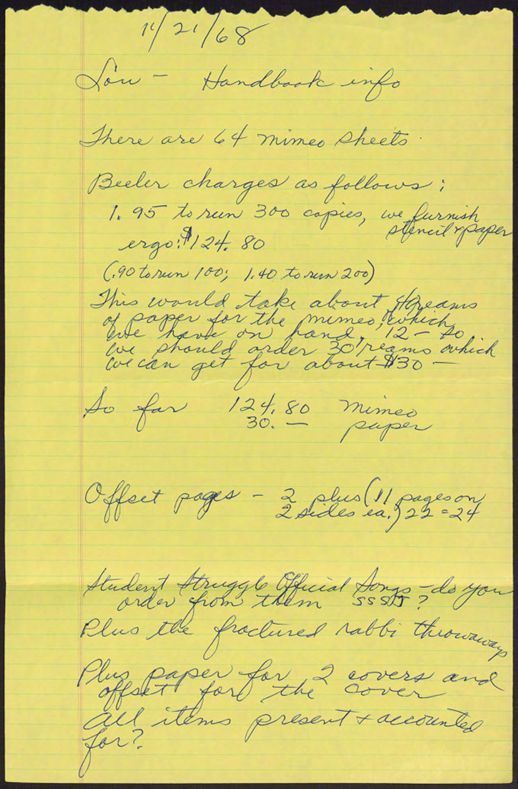 11/21/68
Lou - Handbook info
There are 64 mimeo sheets.
Beeler charges as follows:
1.95 to run 300 copies, we furnish
stencil + paper
ergo: $124.80
(.90 to run 100; 1.40 to run 200)
This would take about reams
of paper for the mimeo, which
we have on hand, 12 - so
we should order 30 reams which
we can get for about $30 -
So far 124.80 mimeo
30. — paper
Offset pages - 2 plus (11 pages on
2 sides ea.) 22 = 24
Student Struggle Official Songs - do you
order from them SSSJ?
Plus the fractured rabbi throwaways
Plus paper for 2 covers and
offset for the cover
All items present + accounted
for?